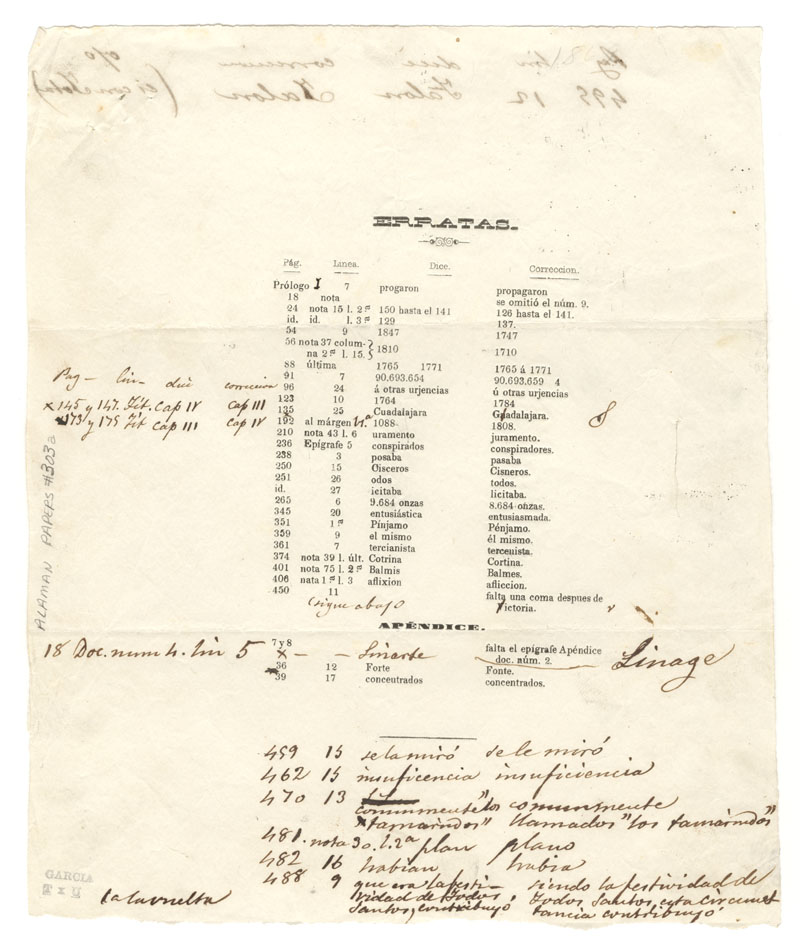 ERRATAS.
Pág. Línea. Dice. Correccion.
Prólogo I 7 progaron propagaron
18 nota se omitió el núm. 9.
24 nota 15 l. 2ª 150 hasta el 141 126 hasta el 141.
id. id. l. 3ª 129 137.
54 9 1847 1747
56 nota 37 colum-
na 2ª l. 15. } 1810 1710
88 última 1765 1771 1765 á 1771
91 7 90.693.654 90.693.659 4
96 24 á otras urjencias ú otras urjencias
123 10 1764 1784
135 25 Cuadalajara Guadalajara.
192 al márgen 1088 1808.
210 nota 43 l. 6 uramento juramento.
236 Epígrafe 5 conspirados conspiradores.
238 3 posaba pasaba
250 15 Cisceros Cisneros.
251 26 odos todos.
id. 27 icitaba licitaba.
265 6 9.684 onzas 8.684 onzas.
345 20 entusiástica entusiasmada.
351 1ª Pínjamo Pénjamo.
359 9 el mismo él mismo.
361 7 tercianista terceuista.
374 nota 39 l. últ. Cotrina Cortina.
401 nota 75 l. 2ª Balmis Balmes.
406 nata 1ª l. 3 aflixion afliccion.
450 11 falta una coma despues de
Victoria.
(sigue abajo
Pag - lin - dice correccion
x 145 y 147. Tit. Cap IV Cap III
x 173 y 175 Tit Cap III Cap IV
ALAMAN PAPERS #303a
APÉNDICE.
7 y 8 falta el epígrafe Apéndice
doc. núm. 2.
18 Doc. num 4. lin 5 x - - Liniarte Linage
36 12 Forte Fonte.
39 17 conceutrados concentrados.
459 15 se la miró se le miró
462 15 insuficencia insuficiencia
470 13 comunmente "los comunmente
tamarindos" llamados "los tamarindos"
481. nota 30. l. 2ª plan plano
482 16 habian habia
488 9 que era la festi- siendo la festividad de
vidad de Todos Todos Santos, esta circuns
Santos, contribuyó tancia contribuyó
GARCIA
a la vuelta
Pag lin dice correccion
495 12 Falon Talon